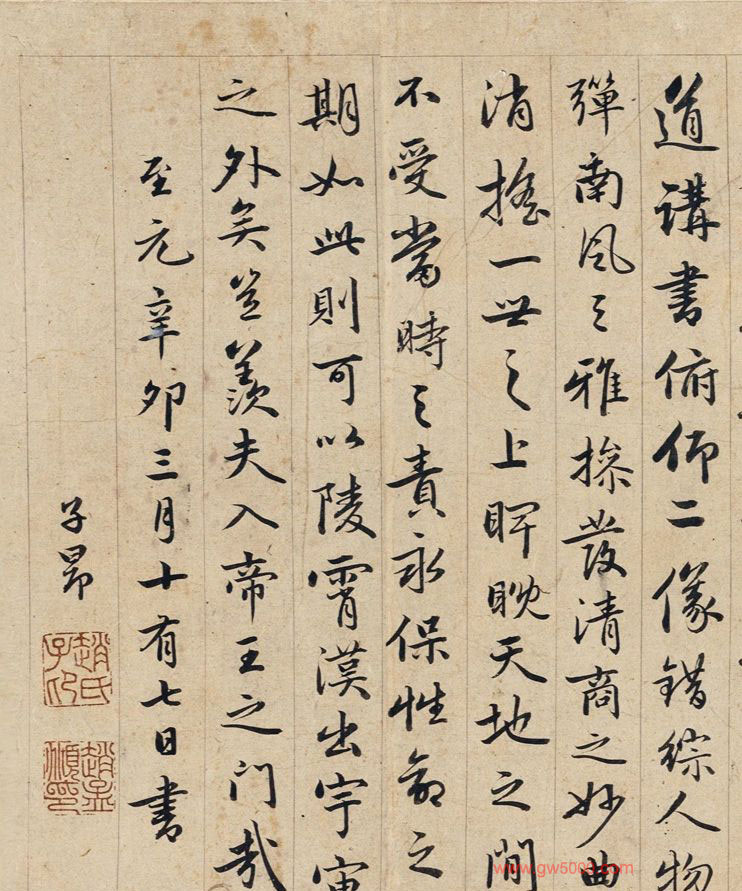 道講書俯仰二儀錯綜人物
彈南風之雅操發清商之妙曲
消搖一世之上睥睨天地之間
不受當時之責永保性命之
期如此則可以陵霄漢出宇宙
之外矣豈羨夫入帝王之門哉
至元辛卯三月十有七日書
子昂
趙氏子昂
趙孟頫印